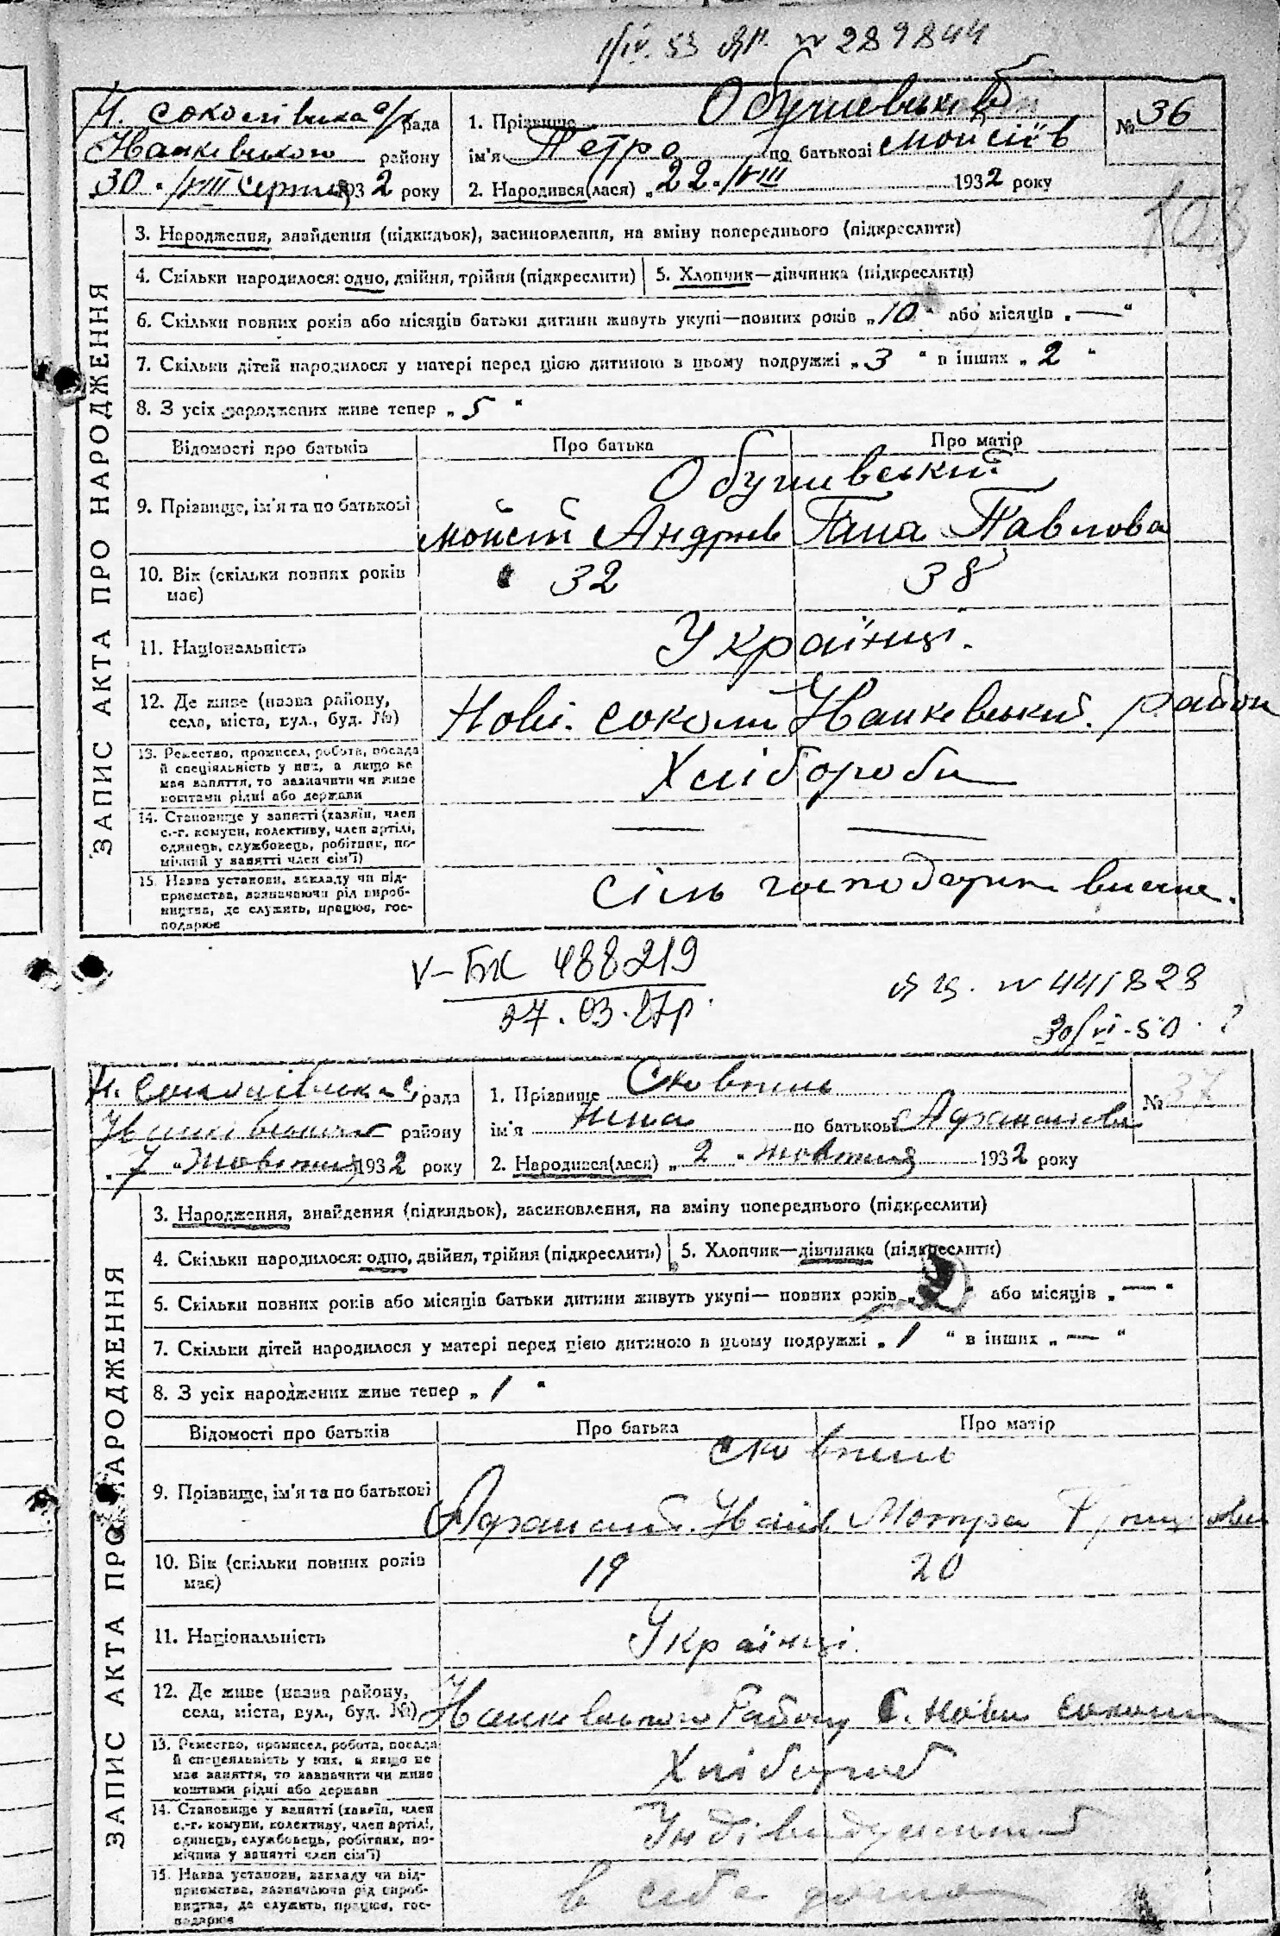 № 289844
Н. соколівська с/рада
Іванківського району
30 . /VIII Серпня 1932 року
1. Прізвище
ім'я Петро по батькові Мойсіїв
2. Народився(лася) „ 22. /VIII 1932 року
№ 36
ЗАПИС АКТА ПРО НАРОДЖЕННЯ
3. Народження, знайдення (підкидьок), засиновлення, на зміну попереднього (підкреслити)
4. Скільки народилося: одно, двійня, трійня (підкреслити)
5. Хлопчик—дівчинка (підкреслити)
6. Скільки повних років або місяців батьки дитини живуть укупі—повних років „ 10 " або місяців „ — "
7. Скільки дітей народилося у матері перед цією дитиною в цьому подружжі „ 3 " в інших „ 2 "
8. З усіх народжених живе тепер „ 5 "
Відомості про батьків
Про батька
Про матір
9. Прізвище, ім'я та по батькові
Мойсій Андріїв
Гана Павлова
10. Вік (скільки повних років має)
32
38
11. Національність
Українці.
12. Де живе (назва району, села, міста, вул., буд. №)
Нові. соколи Іванківський. район
13. Ремество, промисел, робота, посада й спеціяльність у них, а якщо не має заняття, то зазначити чи живе коштами рідні або держави
Хлібороби
14. Становище у занятті (хазяїн, член с.-г. комуни, колективу, член артілі, одинець, службовець, робітник, помічний у занятті член сім'ї)
— —
15. Назва установи, закладу чи підприємства, зазначаючи рід виробництва, де служить, працює, господарює
сіль господарки
V-БК 488219
27.03.87р.
№ 441828
30/VI-50.
Н. Соколівська с. рада
Іванківського району
„ 7 „ Жовтня 1932 року
1. Прізвище Сковпень
ім'я Ніна по батькові Афанасієва
2. Народився(лася) „ 2 „ Жовтня 1932 року
№ 37
ЗАПИС АКТА ПРО НАРОДЖЕННЯ
3. Народження, знайдення (підкидьок), засиновлення, на зміну попереднього (підкреслити)
4. Скільки народилося: одно, двійня, трійня (підкреслити)
5. Хлопчик—дівчинка (підкреслити)
6. Скільки повних років або місяців батьки дитини живуть укупі— повних років або місяців „ — "
7. Скільки дітей народилося у матері перед цією дитиною в цьому подружжі „ 1 " в інших „ — "
8. З усіх народжених живе тепер „ 1 "
Відомості про батьків
Про батька
Про матір
Сковпень
9. Прізвище, ім'я та по батькові
Афанасій Іванів
Мотря
10. Вік (скільки повних років має)
19
20
11. Національність
Українці.
12. Де живе (назва району, села, міста, вул., буд. №)
Іванківського Району С. Нові соколи
13. Ремество, промисел, робота, посада й спецеяльність у них, а якщо не має заняття, то зазначити чи живе коштами рідні або держави
Хлібороб
14. Становище у занятті (хазяїн, член с.-г. комуни, колективу, член артілі, одинець, службовець, робітник, помічник у занятті член сім'ї)
Індівидуальний
15. Назва установи, закладу чи підприємства, зазначаючи рід виробництва, де служить, працює, господарює
в себе дома